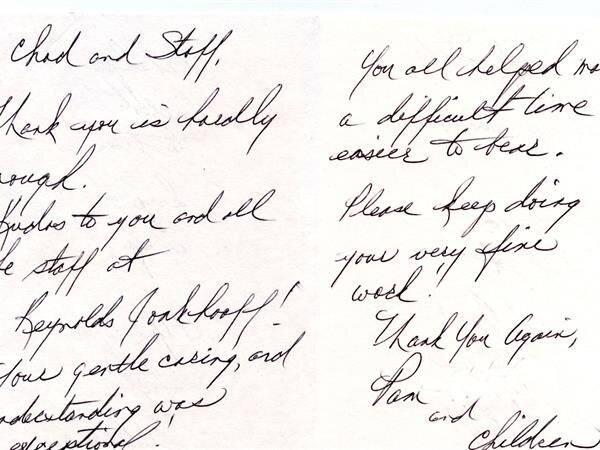 Chad and Staff,
Thank you is hardly
nough.
Kudos to you and all
he staff at
Reynolds Jonkhooff!
Your gentle caring, and
nderstanding was
exceptional!
You all helped ma
a difficult time
easier to bear.
Please keep doing
your very fine
work!
Thank You Again,
Pam
and
Children